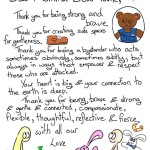 Thank you for being strong and
brave.
Thank you for creating safe spaces
for gentleness.
Thank you for being a bystander who acts
sometimes obviously, sometimes subtly, but
always in ways that empower & respect
those who are attacked.
Your heart is big & your connection to
the earth is deep.
Thank you for being brave & strong
& gentle & connected, compassionate,
flexible, thoughtful, reflective & fierce,
with all our
Love